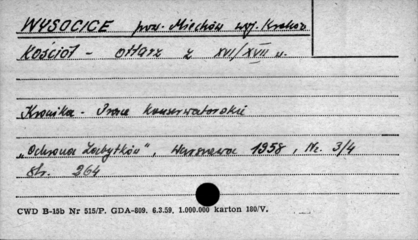 WYSOCICE pow. Miechów woj. Kraków
Kościół - ołtarz z XVI/XVII w.
Kronika - Prace konserwatorskie
"Ochrona Zabytków", Warszawa 1958, Nr. 3/4
str. 264
CWD B-15b Nr 515/P. GDA-809. 6.3.59. 1.000.000 karton 180/V.